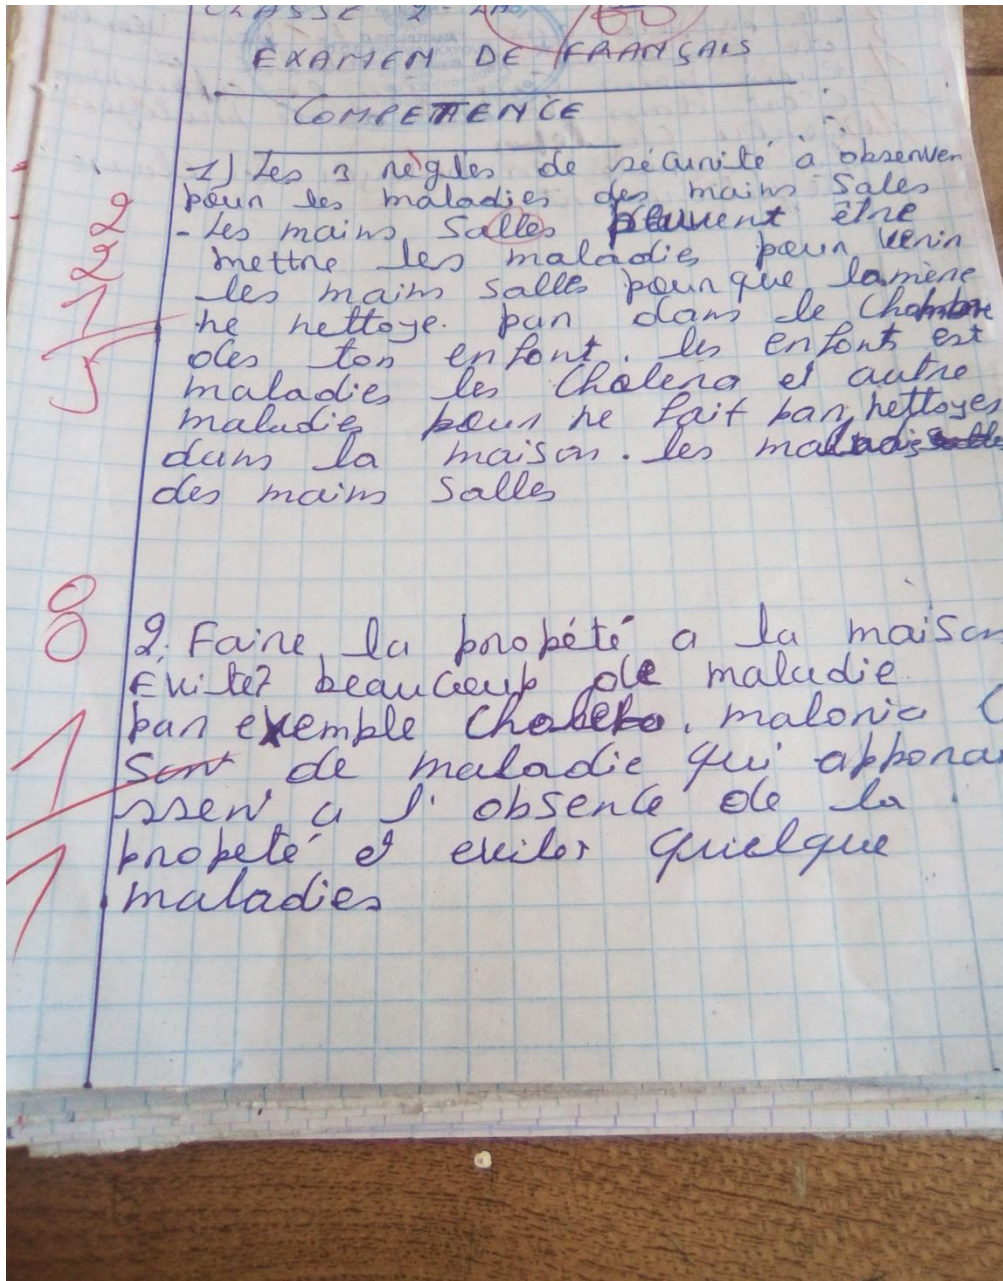 CLASSE 2
60
EXAMEN DE FRANÇAIS
COMPETTENCE
1) Les 3 règles de sécurité à observer
pour les maladies des mains Sales
- Les mains Salles peuvent être
mettre les maladies pour venir
les mains salles pour que la mère
ne nettoye. par dans le Chambre
des ton enfont. les enfonts est
maladies les Cholera et autre
maladies pour ne fait par nettoyes
dans la maison. les maladis
des mains Salles
2
2
2
1
5
0
0
2. Faire la propété a la maison
Évitez beaucoup de maladie
par exemple malonia (
Sont de maladie qui appora
ssen a l' obsence de la
propeté et eviter quielque
maladies
1
1